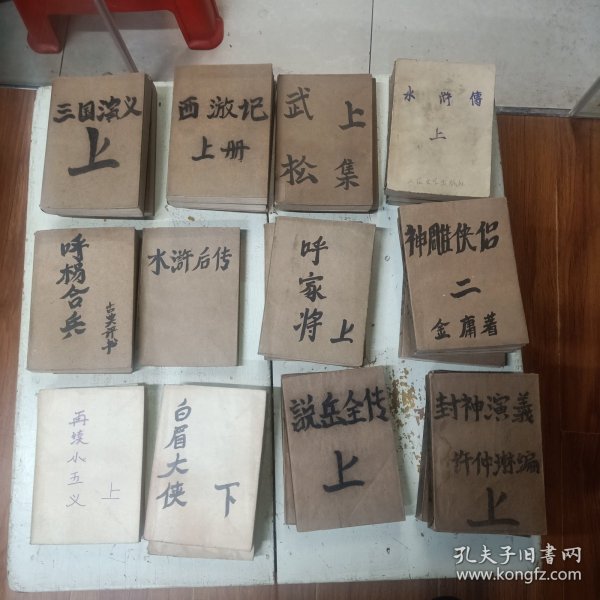 三国演义
上
西游记
上册
武松
上集
水浒傳
上
人民文学出版社
呼杨合兵
水浒后传
呼家将
上
神雕侠侣
二
金庸著
再续小五义
上
白眉大侠
下
説岳全传
上
封神演義
许仲琳编
上
孔夫子旧书网
www.kongfz.com